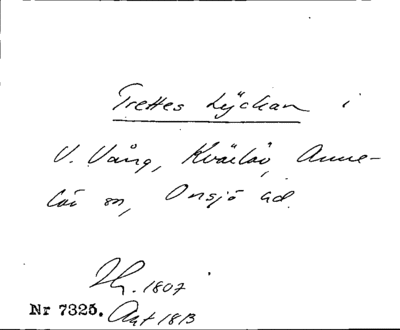 Trettes Lyckan i
V. Vång, Kvärlöv, Anne-
löv sn, Onsjö hd.
Jb. 1807
Nr 7325. Akt 1813